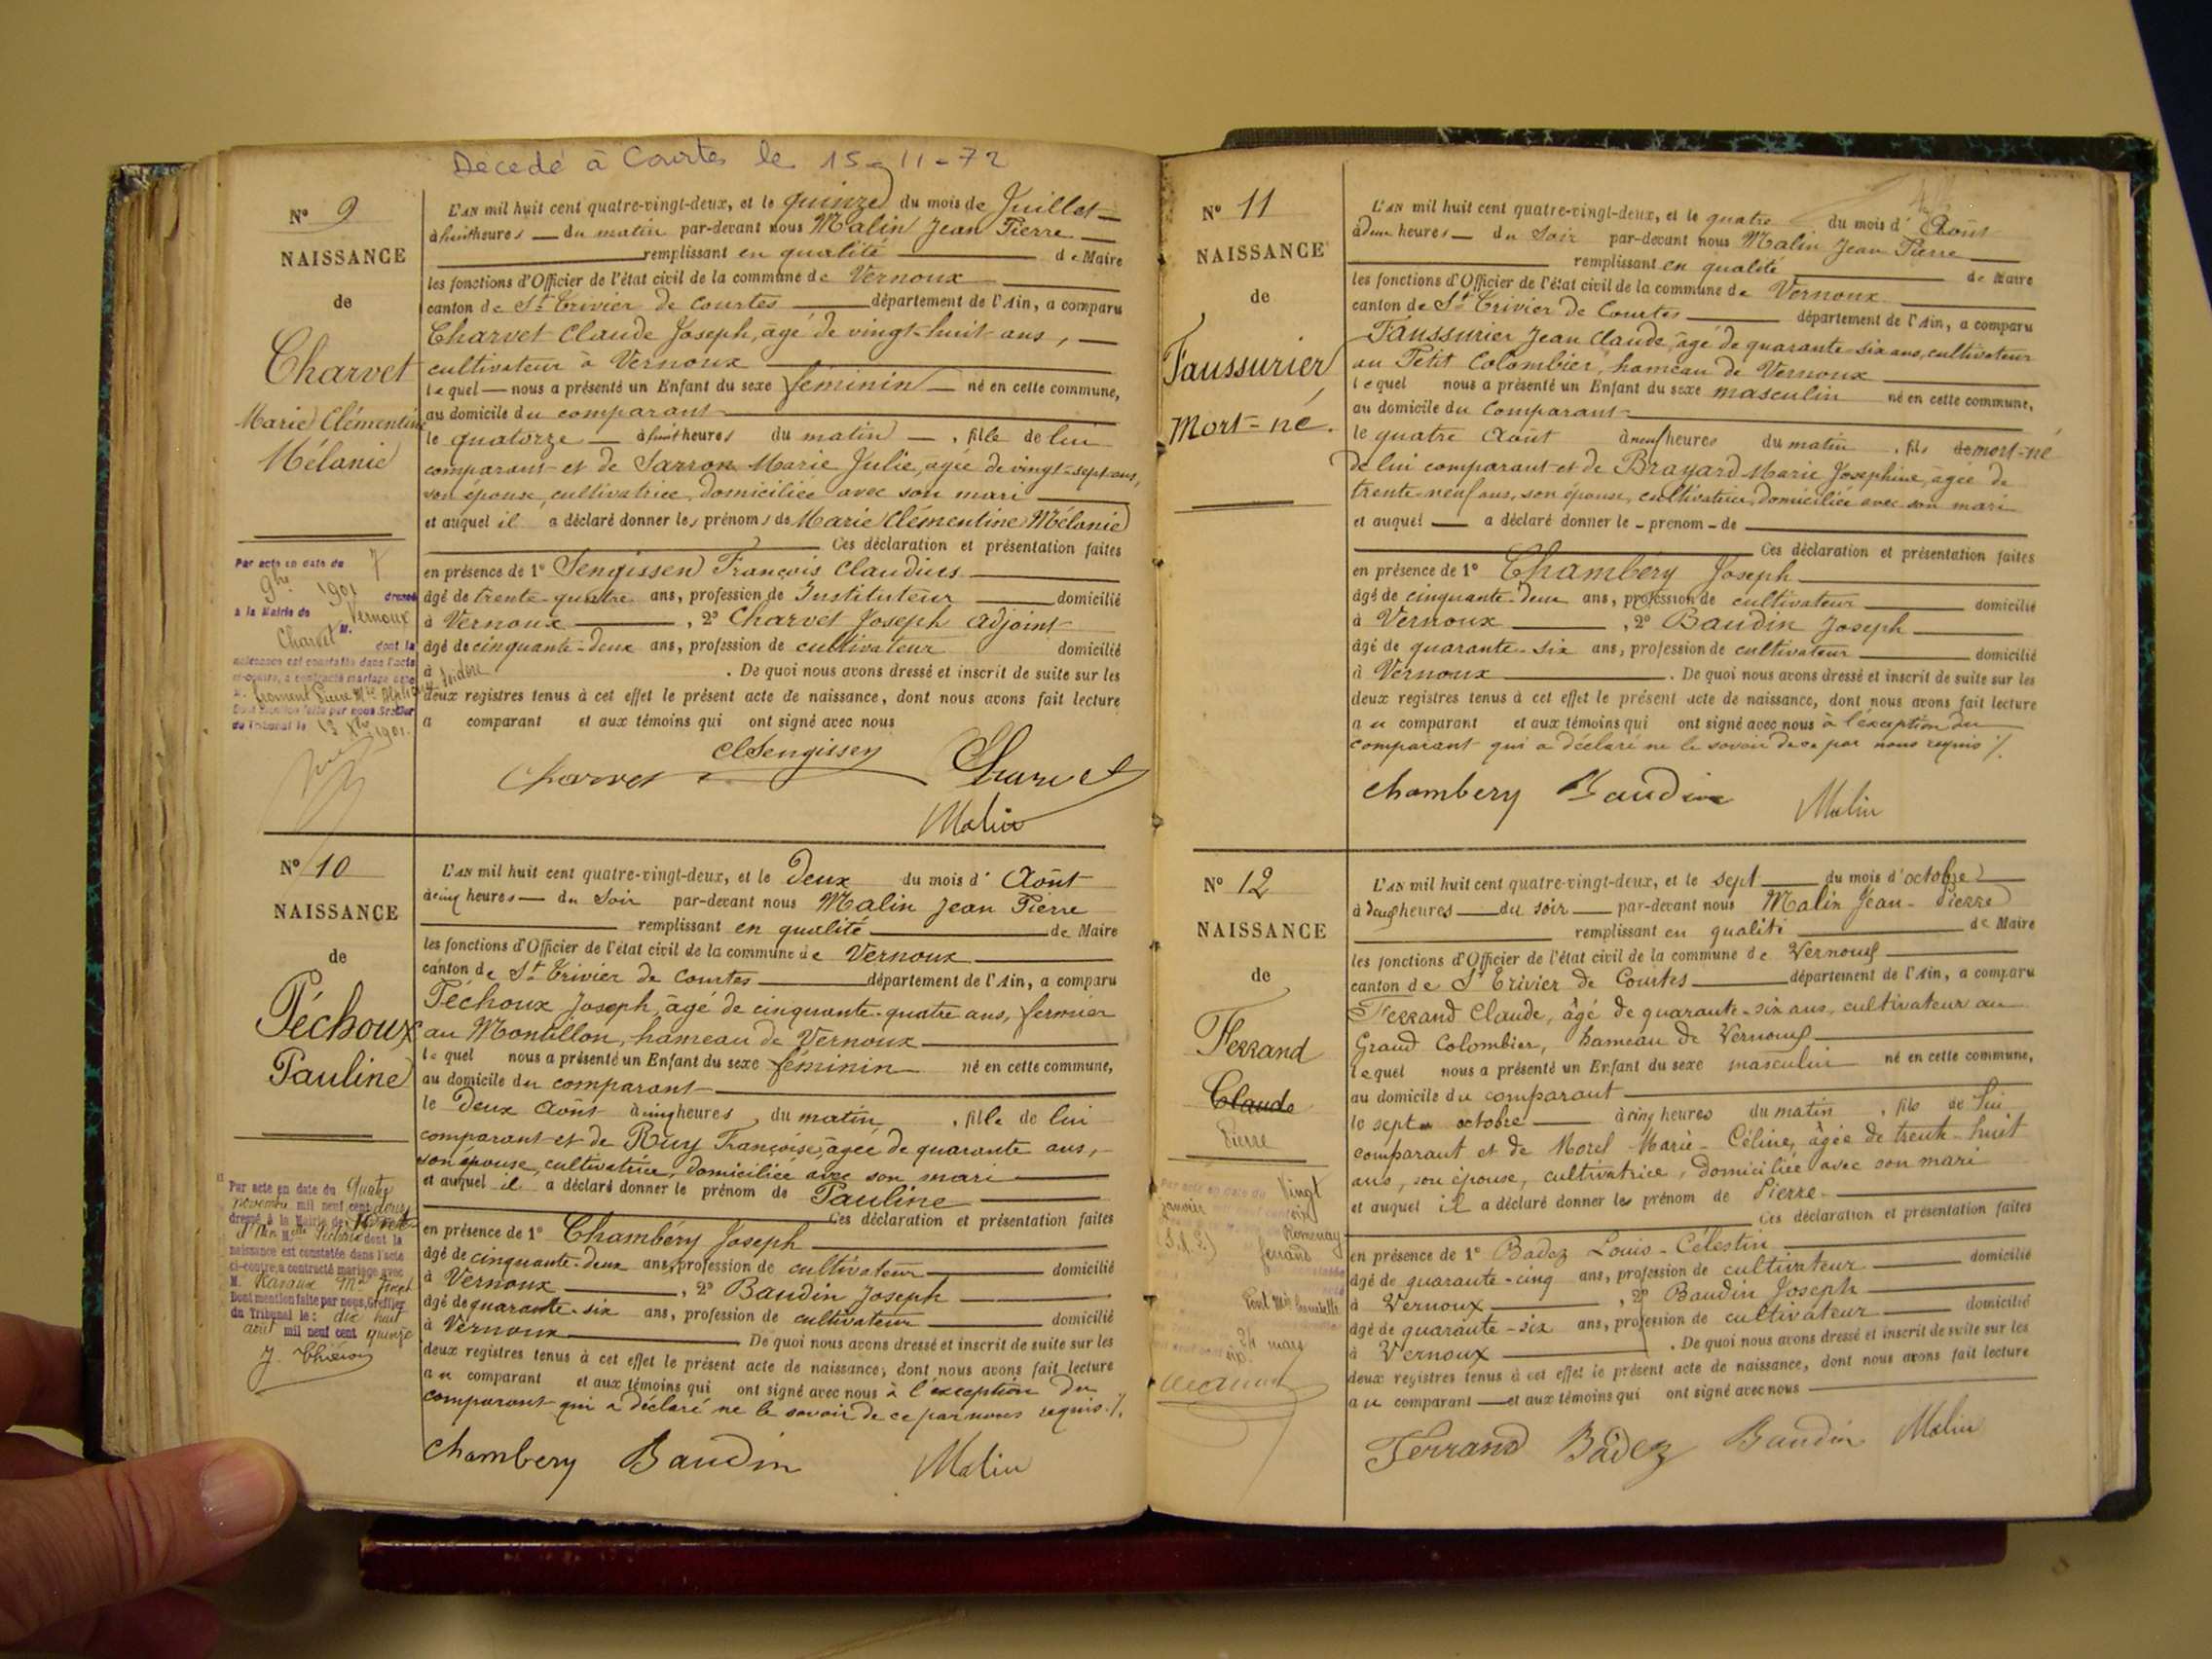 Décedé à Courtes le 15-11-72
N° 9
NAISSANCE
de
Charvet
Marie Clémentine
Mélanie
Par acte en date du 7
9bre 1901 dressé
à la Mairie de Vernoux
M. Charvet
dont la
naissance est constatée dans l'acte
ci-contre, a contracté mariage avec
Dont mention faite par nous Greffier
du Tribunal le 13 Xbre 1901.
L'AN mil huit cent quatre-vingt-deux, et le quinze du mois de Juillet
à huit heures du matin par-devant nous Malin Jean Pierre
remplissant en qualité de Maire
les fonctions d'Officier de l'état civil de la commune de Vernoux
canton de St Trivier de Courtes département de l'Ain, a comparu
Charvet Claude Joseph, âgé de vingt-huit ans,
cultivateur à Vernoux
lequel nous a présenté un Enfant du sexe féminin né en cette commune,
au domicile du comparant
le quatorze à huit heures du matin, fille de lui
comparant et de Sarron Marie Julie, âgée de vingt-sept ans,
son épouse, cultivatrice, domiciliée avec son mari
et auquel il a déclaré donner les prénoms de Marie Clémentine Mélanie
Ces déclaration et présentation faites
en présence de 1° Sengissen François Claudius
âgé de trente-quatre ans, profession de Instituteur domicilié
à Vernoux, 2° Charvet Joseph adjoint
âgé de cinquante-deux ans, profession de cultivateur domicilié
à . De quoi nous avons dressé et inscrit de suite sur les
deux registres tenus à cet effet le présent acte de naissance, dont nous avons fait lecture
a comparant et aux témoins qui ont signé avec nous
Sengissen
Charvet Charvet
Malin
N° 10
NAISSANCE
de
Péchoux
Pauline
Par acte en date du Quatre
novembre mil neuf cent
dressé à la Mairie de
dont la
naissance est constatée dans l'acte
ci-contre, a contracté mariage avec
M.
Dont mention faite par nous, Greffier
du Tribunal le : dix huit
août mil neuf cent quinze
L'AN mil huit cent quatre-vingt-deux, et le Deux du mois d'Août
à cinq heures du soir par-devant nous Malin Jean Pierre
remplissant en qualité de Maire
les fonctions d'Officier de l'état civil de la commune de Vernoux
canton de St Trivier de Courtes département de l'Ain, a comparu
Péchoux Joseph, âgé de cinquante-quatre ans, fermier
au Montillon, hameau de Vernoux
lequel nous a présenté un Enfant du sexe féminin né en cette commune,
au domicile du comparant
le Deux Août à cinq heures du matin, fille de lui
comparant et de Ruy Françoise, âgée de quarante ans,
son épouse, cultivatrice, domiciliée avec son mari
et auquel il a déclaré donner le prénom de Pauline
Ces déclaration et présentation faites
en présence de 1° Chambéry Joseph
âgé de cinquante-deux ans, profession de cultivateur domicilié
à Vernoux, 2° Baudin Joseph
âgé de quarante-six ans, profession de cultivateur domicilié
à Vernoux De quoi nous avons dressé et inscrit de suite sur les
deux registres tenus à cet effet le présent acte de naissance, dont nous avons fait lecture
au comparant et aux témoins qui ont signé avec nous à l'exception du
comparant qui a déclaré ne le savoir de ce par nous requis ./.
Chambery Baudin Malin
N° 11
NAISSANCE
de
Faussurier
Mort-né.
L'AN mil huit cent quatre-vingt-deux, et le quatre du mois d'Août
à deux heures du soir par-devant nous Malin Jean Pierre
remplissant en qualité de Maire
les fonctions d'Officier de l'état civil de la commune de Vernoux
canton de St Trivier de Courtes département de l'Ain, a comparu
Faussurier Jean Claude, âgé de quarante-six ans, cultivateur
au Petit Colombier, hameau de Vernoux
lequel nous a présenté un Enfant du sexe masculin né en cette commune,
au domicile du Comparant
le quatre Août à neuf heures du matin, fils de mort-né
de lui comparant et de Brayard Marie Josephine, âgée de
trente-neuf ans, son épouse, cultivatrice, domiciliée avec son mari
et auquel a déclaré donner le prénom de
Ces déclaration et présentation faites
en présence de 1° Chambéry Joseph
âgé de cinquante-deux ans, profession de cultivateur domicilié
à Vernoux, 2° Baudin Joseph
âgé de quarante-six ans, profession de cultivateur domicilié
à Vernoux . De quoi nous avons dressé et inscrit de suite sur les
deux registres tenus à cet effet le présent acte de naissance, dont nous avons fait lecture
au comparant et aux témoins qui ont signé avec nous à l'exception du
comparant qui a déclaré ne le savoir de ce par nous requis ./.
Chambery Baudin Malin
N° 12
NAISSANCE
de
Ferrand
Claude
Pierre
Par acte en date du Vingt
janvier
Romenay
ferrand
24 mars
L'AN mil huit cent quatre-vingt-deux, et le sept du mois d'octobre
à deux heures du soir par-devant nous Malin Jean-Pierre
remplissant en qualité de Maire
les fonctions d'Officier de l'état civil de la commune de Vernoux
canton de St Trivier de Courtes département de l'Ain, a comparu
Ferrand Claude, âgé de quarante-six ans, cultivateur au
Grand Colombier, hameau de Vernoux
lequel nous a présenté un Enfant du sexe masculin né en cette commune,
au domicile du comparant
le sept octobre à cinq heures du matin, fils de lui
comparant et de Morel Marie-Céline, âgée de trente-huit
ans, son épouse, cultivatrice, domiciliée avec son mari
et auquel il a déclaré donner les prénom de Pierre
Ces déclaration et présentation faites
en présence de 1° Badez Louis-Célestin
âgé de quarante-cinq ans, profession de cultivateur domicilié
à Vernoux, 2° Baudin Joseph
âgé de quarante-six ans, profession de cultivateur domicilié
à Vernoux . De quoi nous avons dressé et inscrit de suite sur les
deux registres tenus à cet effet le présent acte de naissance, dont nous avons fait lecture
au comparant et aux témoins qui ont signé avec nous
Ferrand Badez Baudin Malin